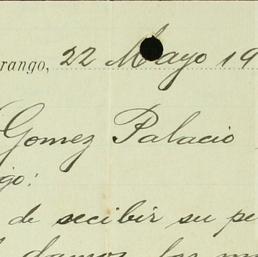 rango, 22 Mayo 19
Gomez Palacio
go:
de recibir su pe
damos las